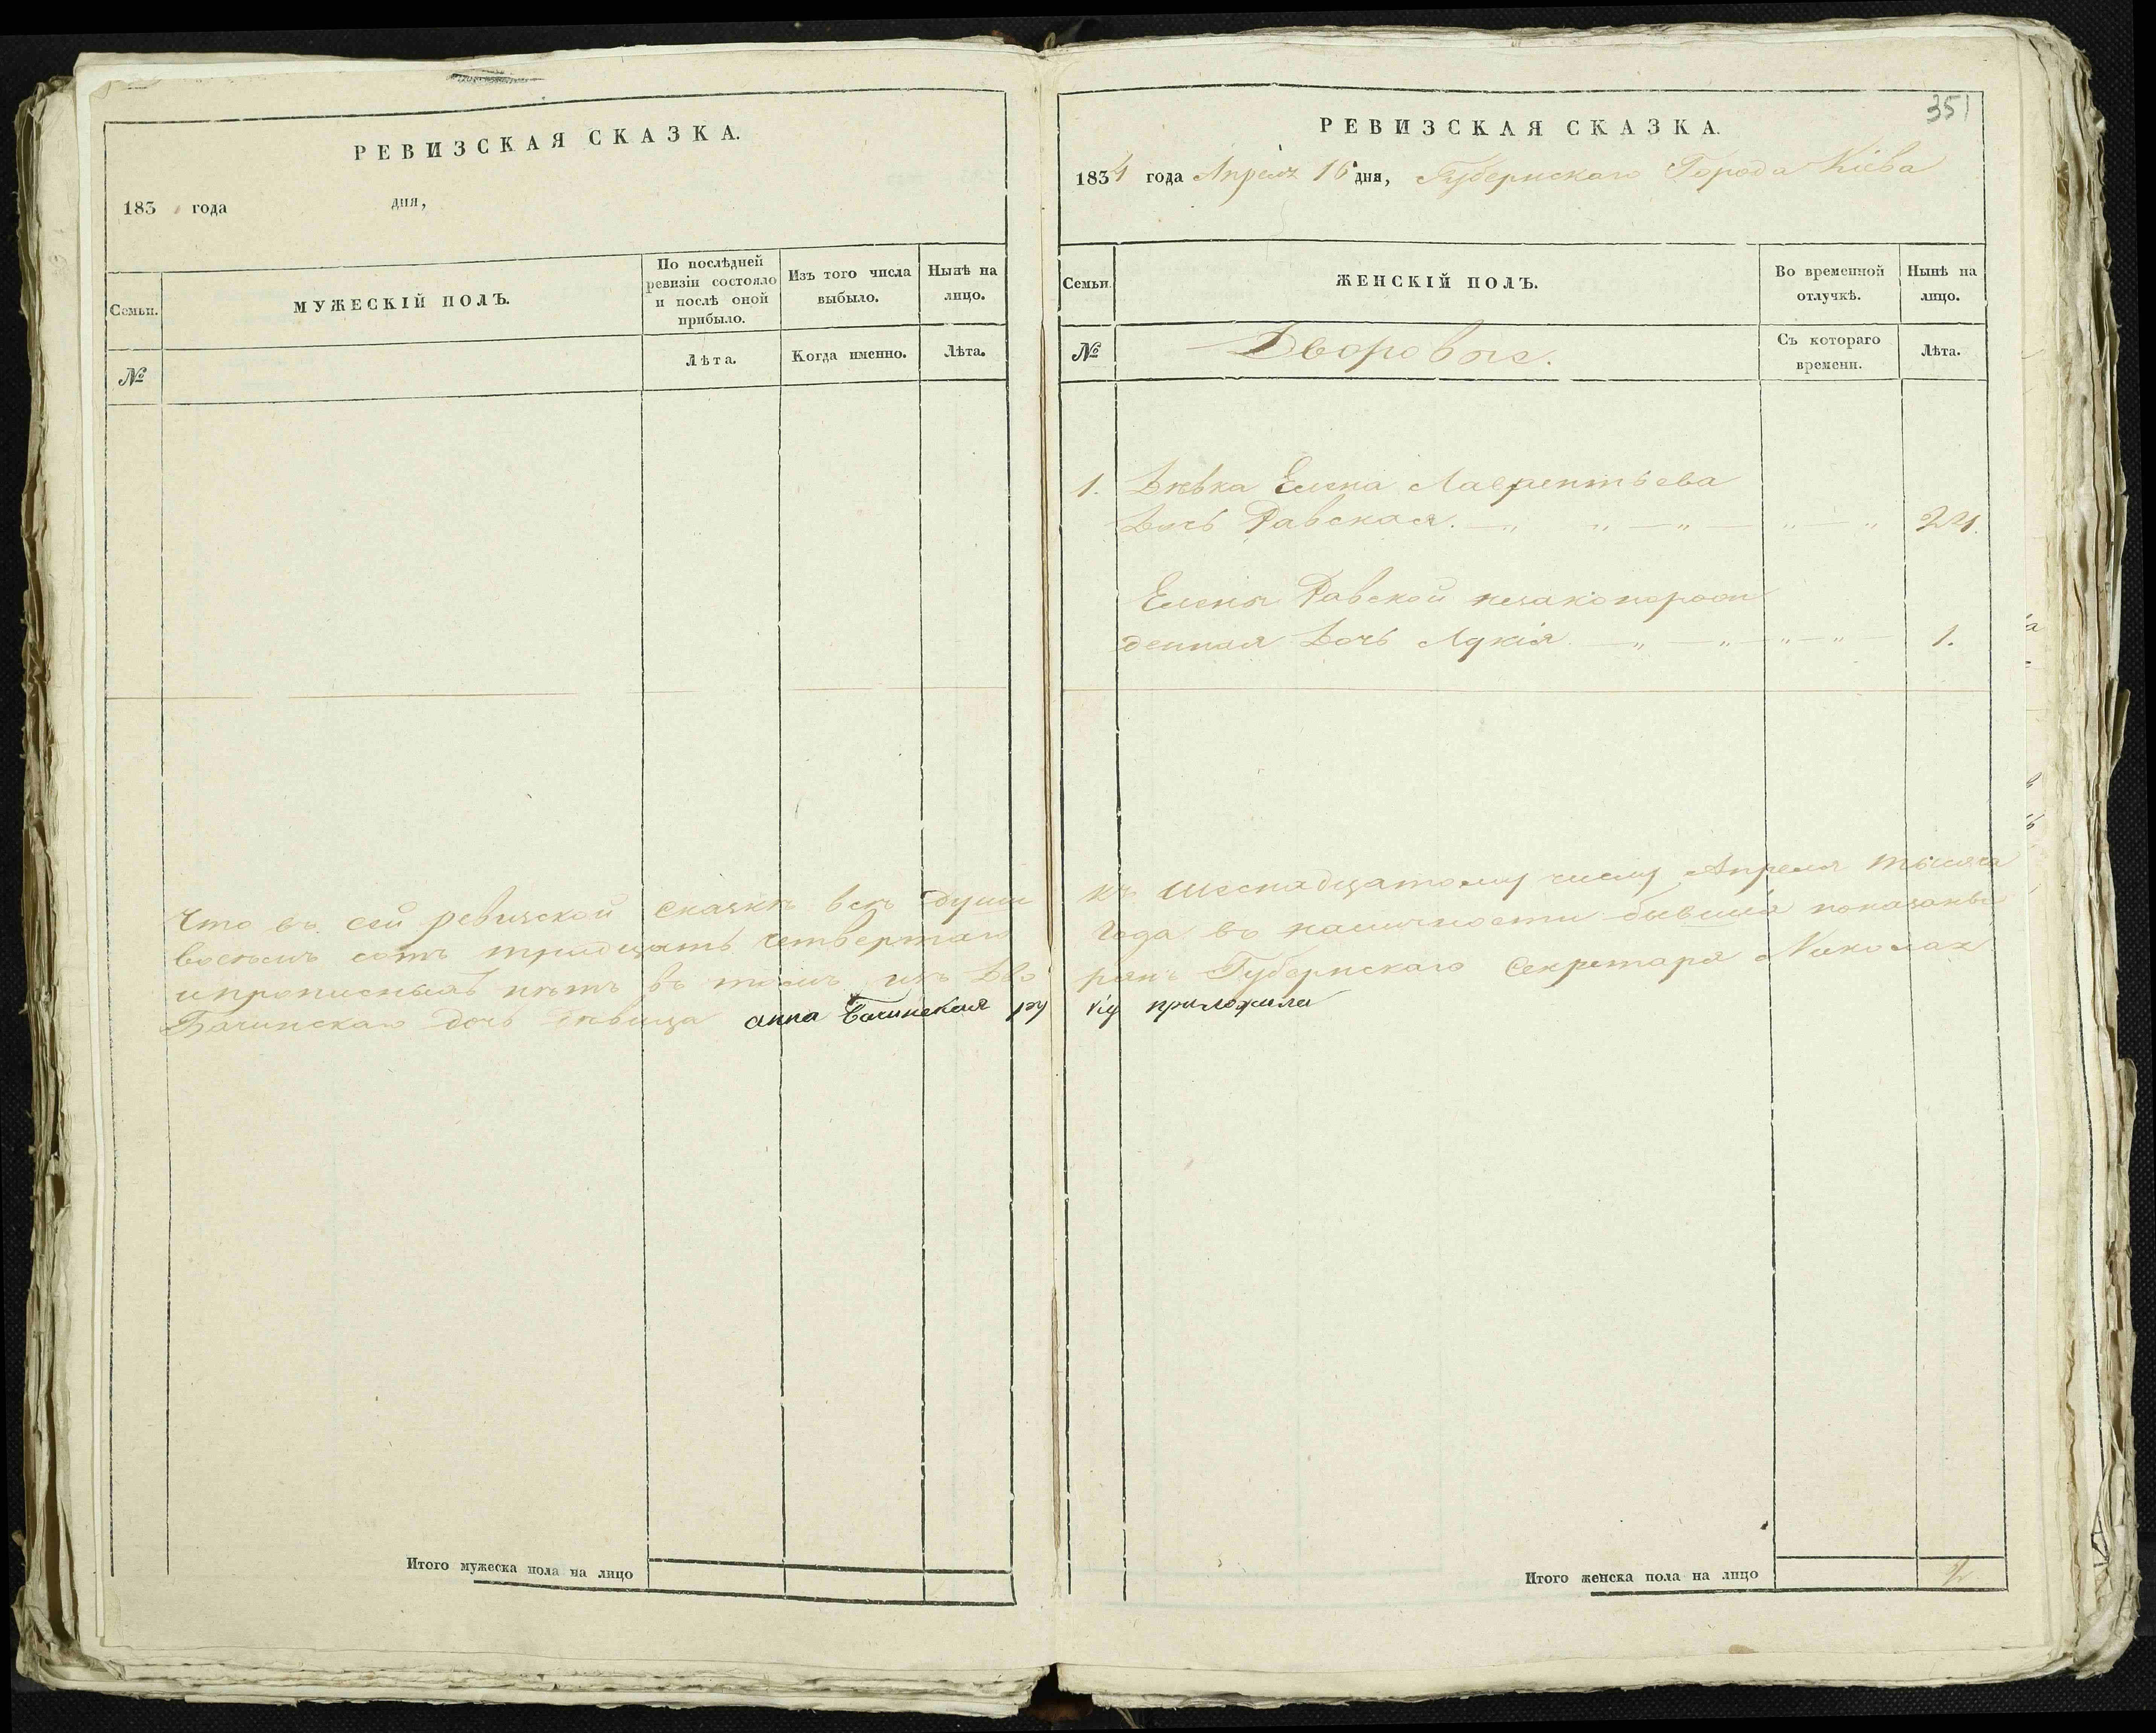 РЕВИЗСКАЯ СКАЗКА.
183 года дня,
Семьи.
МУЖЕСКІЙ ПОЛЪ.
По послѣдней
ревизіи состояло
и послѣ оной
прибыло.
Изъ того числа
выбыло.
Нынѣ на
лицо.
№
Лѣта.
Когда именно.
Лѣта.
Итого мужеска пола на лицо
351
РЕВИЗСКАЯ СКАЗКА.
1834 года Апреля 16 дня, Губернскаго Города Кіева
Семьи.
ЖЕНСКІЙ ПОЛЪ.
Во временной
отлучкѣ.
Нынѣ на
лицо.
№
Дворовые.
Съ котораго
времени.
Лѣта.
1. Дѣвка Елена Лаврентьева
Дочь Равская.
Елены Равской незаконорож
денная Дочь Лукія 1.
Что въ сей ревизской сказкѣ всѣ души къ шеснадцатому числу Апреля тысяча
восемь сотъ тридцать четвертаго Года во наличности бывшіа показаны
ипрописныхъ нѣтъ въ томъ изъ Дво рянъ Губернскаго Секретаря Николая
Бачинскаго дочь дѣвица анна Бачинская ру ку приложила
Итого женска пола на лицо 2